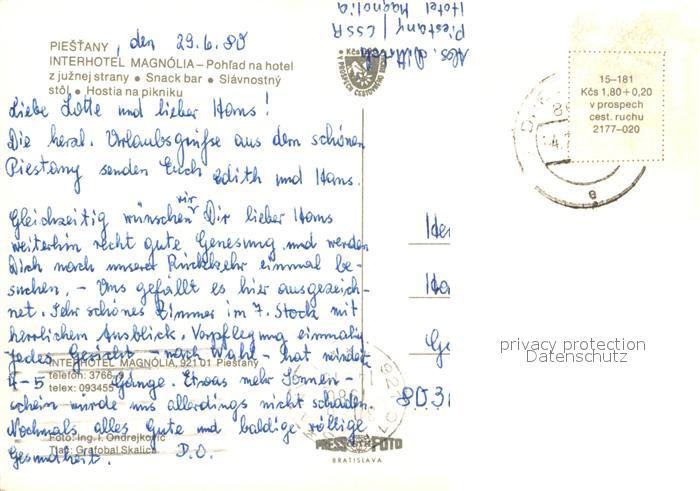 PIEŠŤANY, den 29.6.80
INTERHOTEL MAGNÓLIA – Pohľad na hotel
z južnej strany • Snack bar • Slávnostný
stôl • Hostia na pikniku
Liebe Lotte und lieber Hans!
Die herzl. Urlaubsgrüsse aus dem schönen
Piestany senden Euch Edith und Hans.
Gleichzeitig wünschen wir Dir lieber Hans
weiterhin recht gute Genesung und werden
Dich nach unserer Rückkehr einmal be-
suchen. – Uns gefällt es hier ausgezeich-
net. Sehr schönes Zimmer im 7. Stock mit
herrlichen Ausblick. Verpflegung einmalig
Jedes Gericht – nach Wahl – hat mindest
4-5 Gänge. Etwas mehr Sonnen-
schein würde uns allerdings nicht schaden.
Nochmals alles gute und baldige völlige
Gesundheit. D.O.
INTERHOTEL MAGNÓLIA, 921 01 Piešťany
telefón: 3766-9
telex: 093455
Foto: Ing. I. Ondrejkovič
Tlač: Grafobal Skalica
Abs. Dittrich
Piestany / CSSR
Hotel Magnolia
15–181
Kčs 1,80+0,20
v prospech
cest. ruchu
2177–020
privacy protection
Datenschutz
8031
PRESSFOTO
BRATISLAVA